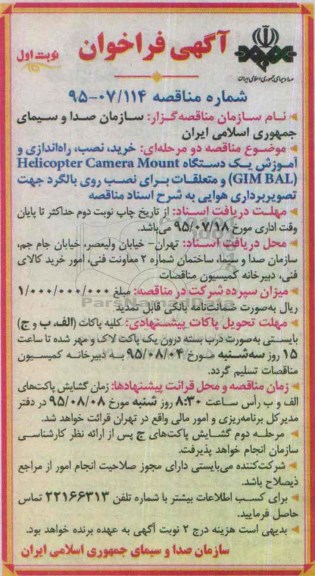 آگهی فراخوان
نوبت اول
صدا و سیمای جمهوری اسلامی ایران
شماره مناقصه ۹۵-۰۷/۱۱۴
نام سازمان مناقصه‌گزار: سازمان صدا و سیمای
جمهوری اسلامی ایران
موضوع مناقصه دو مرحله‌ای: خرید، نصب، راه‌اندازی و
آموزش یک دستگاه Helicopter Camera Mount
(GIM BAL) و متعلقات برای نصب روی بالگرد جهت
تصویربرداری هوایی به شرح اسناد مناقصه
مهلت دریافت اسناد: از تاریخ چاپ نوبت دوم حداکثر تا پایان
وقت اداری مورخ ۹۵/۰۷/۱۸ می‌باشد.
محل دریافت اسناد: تهران- خیابان ولیعصر، خیابان جام جم،
سازمان صدا و سیما، ساختمان شماره ۲ معاونت فنی، امور خرید کالای
فنی، دبیرخانه کمیسیون مناقصات
میزان سپرده شرکت در مناقصه: مبلغ ۱/۰۰۰/۰۰۰/۰۰۰
ریال به‌صورت ضمانت‌نامه بانکی قابل تمدید
مهلت تحویل پاکات پیشنهادی: کلیه پاکات (الف، ب و ج)
بایستی به‌صورت درب بسته درون یک پاکت لاک و مهر شده تا ساعت
۱۵ روز سه‌شنبه مورخ ۹۵/۰۸/۰۴ به دبیرخانه کمیسیون
مناقصات تسلیم گردد.
زمان مناقصه و محل قرائت پیشنهادها: زمان گشایش پاکت‌های
الف و ب رأس ساعت ۸:۳۰ روز شنبه مورخ ۹۵/۰۸/۰۸ در دفتر
مدیرکل برنامه‌ریزی و امور مالی واقع در تهران قرائت خواهد شد.
مرحله دوم گشایش پاکت‌های ج پس از ارائه نظر کارشناسی
سازمان انجام خواهد پذیرفت.
شرکت‌کننده می‌بایستی دارای مجوز صلاحیت انجام امور از مراجع
ذیصلاح باشد.
برای کسب اطلاعات بیشتر با شماره تلفن ۲۲۱۶۶۳۱۳ تماس
حاصل فرمایید.
بدیهی است هزینه درج ۲ نوبت آگهی به عهده برنده خواهد بود.
سازمان صدا و سیمای جمهوری اسلامی ایران